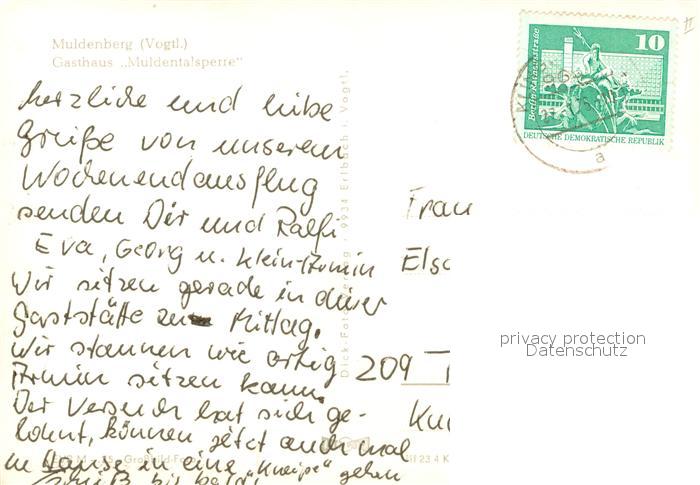 Muldenberg (Vogtl.)
Gasthaus „Muldentalsperre"
herzliche und liebe
Grüße von unserem
Wochenendausflug
senden Dir und Ralf
Eva, Georg u. Klein-Armin
Wir sitzen gerade in dieser
Gaststätte zu Mittag.
Wir staunen wie artig
Armin sitzen kann.
Der Versuch hat sich ge-
lohnt, können jetzt auch mal
zu Hause in eine "Kneipe" gehen
bis bald
Frau
Els
209
Berlin-Rathausstraße
10
DEUTSCHE DEMOKRATISCHE REPUBLIK
a
II
9934 Erlbach i. Vogtl.
privacy protection
Datenschutz